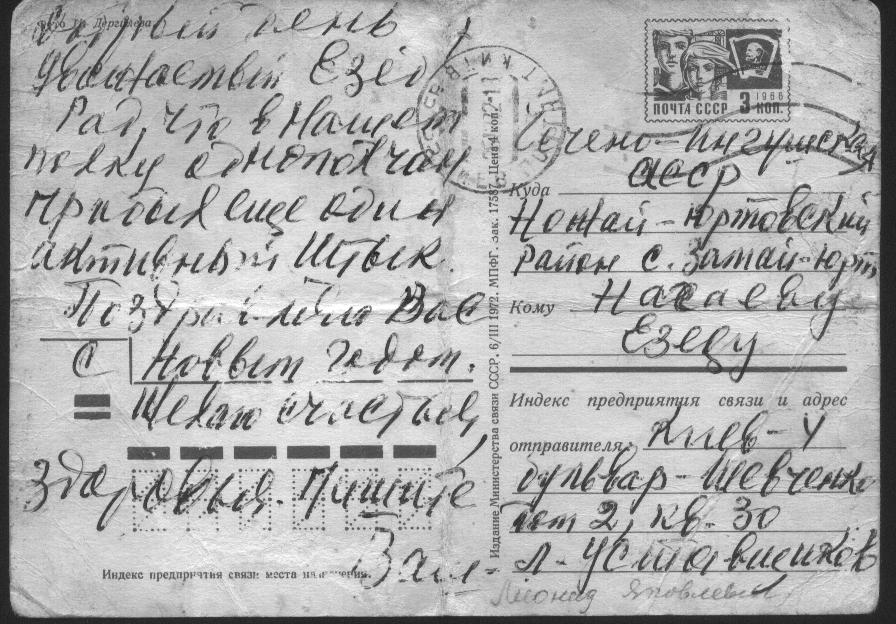 Добрый день
Уважаемый Езед
Рад, что в нашем
полку однополчан
прибыл еще один
активный штык.
Поздравляю Вас
с Новым годом.
Желаю счастья,
здоровья. Пишите
Ваш -
Индекс предприятия связи места назначения.
Издание Министерства связи СССР. 6/III 1972. МПФГ. Зак. 17587. Цена 4 коп.
ПОЧТА СССР 3 КОП.
1966
Чечено-Ингушская
АССР
Куда
Ножай-Юртовский
район с. Замай-Юрт
Кому Насаеву
Езеду
Индекс предприятия связи и адрес
отправителя: Киев-4
бульвар-Шевченко
дом 2, кв. 30
Л. Уставщиков
Леонид Яковлевич